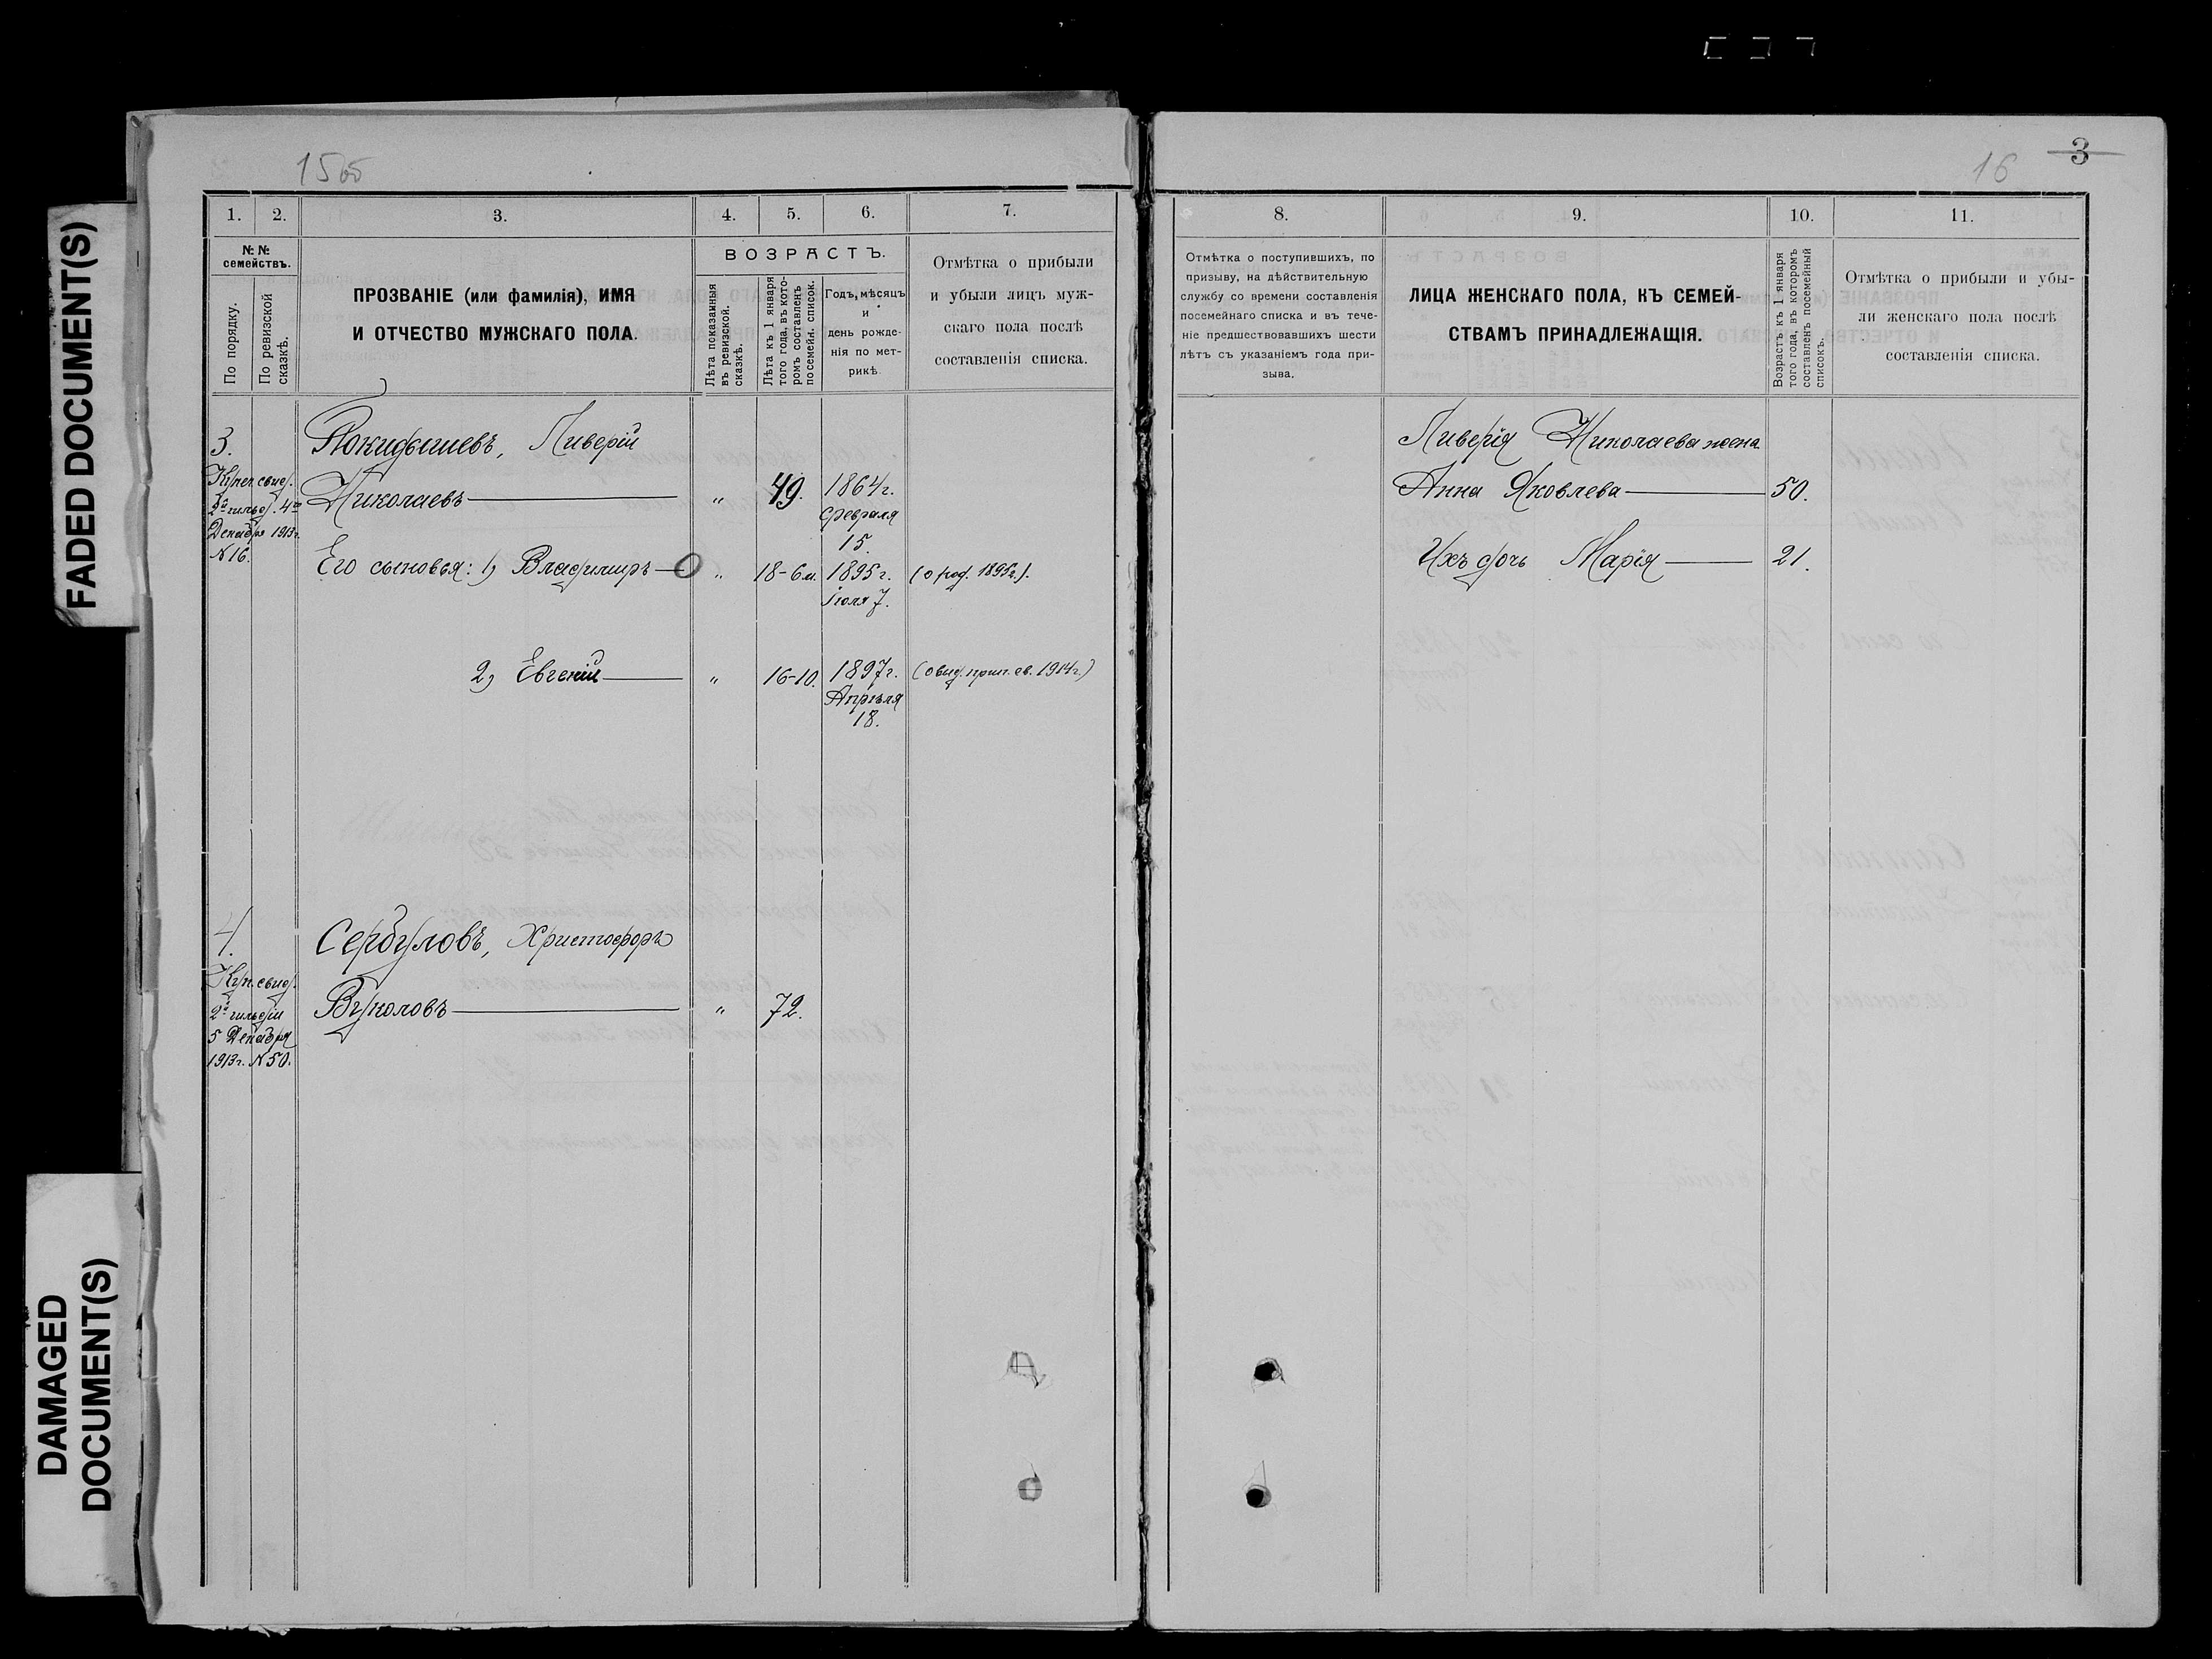 FADED DOCUMENT(S)
DAMAGED
DOCUMENT(S)
15об
1. 2. 3. 4. 5. 6. 7.
№ №
семействъ.
По порядку.
По ревизской
сказкѣ.
ПРОЗВАНІЕ (или фамилія), ИМЯ
И ОТЧЕСТВО МУЖСКАГО ПОЛА.
ВОЗРАСТЪ.
Лѣта показанныя
въ ревизской.
сказкѣ.
Лѣта къ 1 января
того года, въ кото-
ромъ составленъ
посемейн. список.
Годъ, мѣсяцъ
и
день рожде-
нія по мет-
рикѣ.
Отмѣтка о прибыли
и убыли лицъ муж-
скаго пола послѣ
составленія списка.
3.
Купеч. свид.
2й гильд. 4го
Декабря 1913г.
N 16.
Ливерій
Николаевъ " 49. 1864г.
февраля
15.
Его сыновья: 1, Владимиръ " 18-6м. 1895г. (о род. 1895г.).
Іюля 7.
2, Евгеній " 16-10. 1897г.
Апрѣля
18.
4.
Куп. свид.
2й гильдіи
5 Декабря
1913г. N 50.
Сербуловъ, Христофоръ
Вуколовъ " 72.
16 3
8. 9. 10. 11.
Отмѣтка о поступившихъ, по
призыву, на дѣйствительную
службу со времени составленія
посемейнаго списка и въ тече-
ніе предшествовавшихъ шести
лѣтъ съ указаніемъ года при-
зыва.
ЛИЦА ЖЕНСКАГО ПОЛА, КЪ СЕМЕЙ-
СТВАМЪ ПРИНАДЛЕЖАЩІЯ.
Возрастъ къ 1 января
того года, въ которомъ
составленъ посемейный
списокъ.
Отмѣтка о прибыли и убы-
ли женскаго пола послѣ
составленія списка.
Ливерія Николаева жена
Анна Яковлева 50.
Ихъ дочь Марія 21.